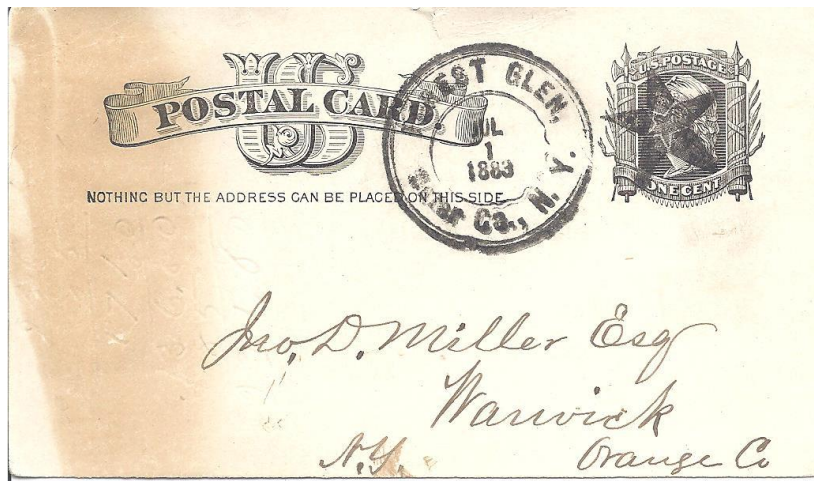 US
POSTAL CARD.
NOTHING BUT THE ADDRESS CAN BE PLACED ON THIS SIDE.
EST GLEN,
JUL
1
1883
Co., N. Y.
U.S. POSTAGE
ONE CENT
Jno. D. Miller Esq
Warwick
N.Y. Orange Co